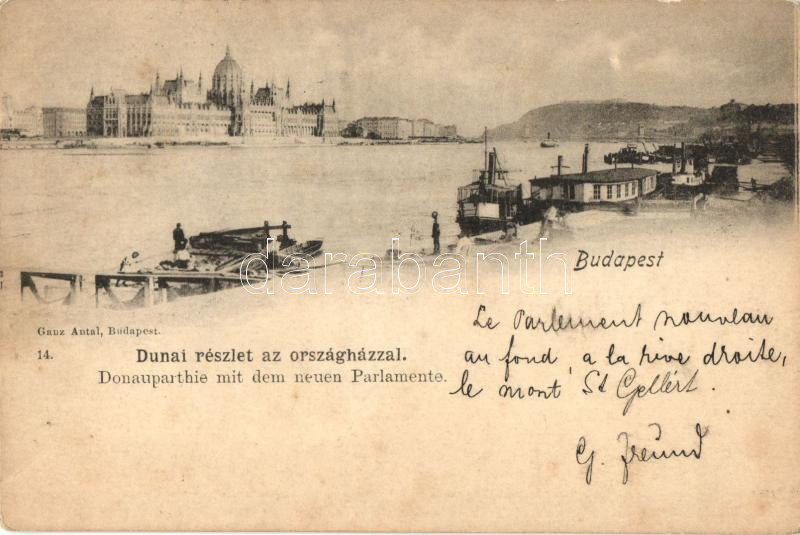 darabanth
Budapest
Ganz Antal, Budapest.
14. Dunai részlet az országházzal.
Donauparthie mit dem neuen Parlamente.
Le Parlement nouveau
au fond, a la rive droite,
le mont St Gellért.
G. Freund